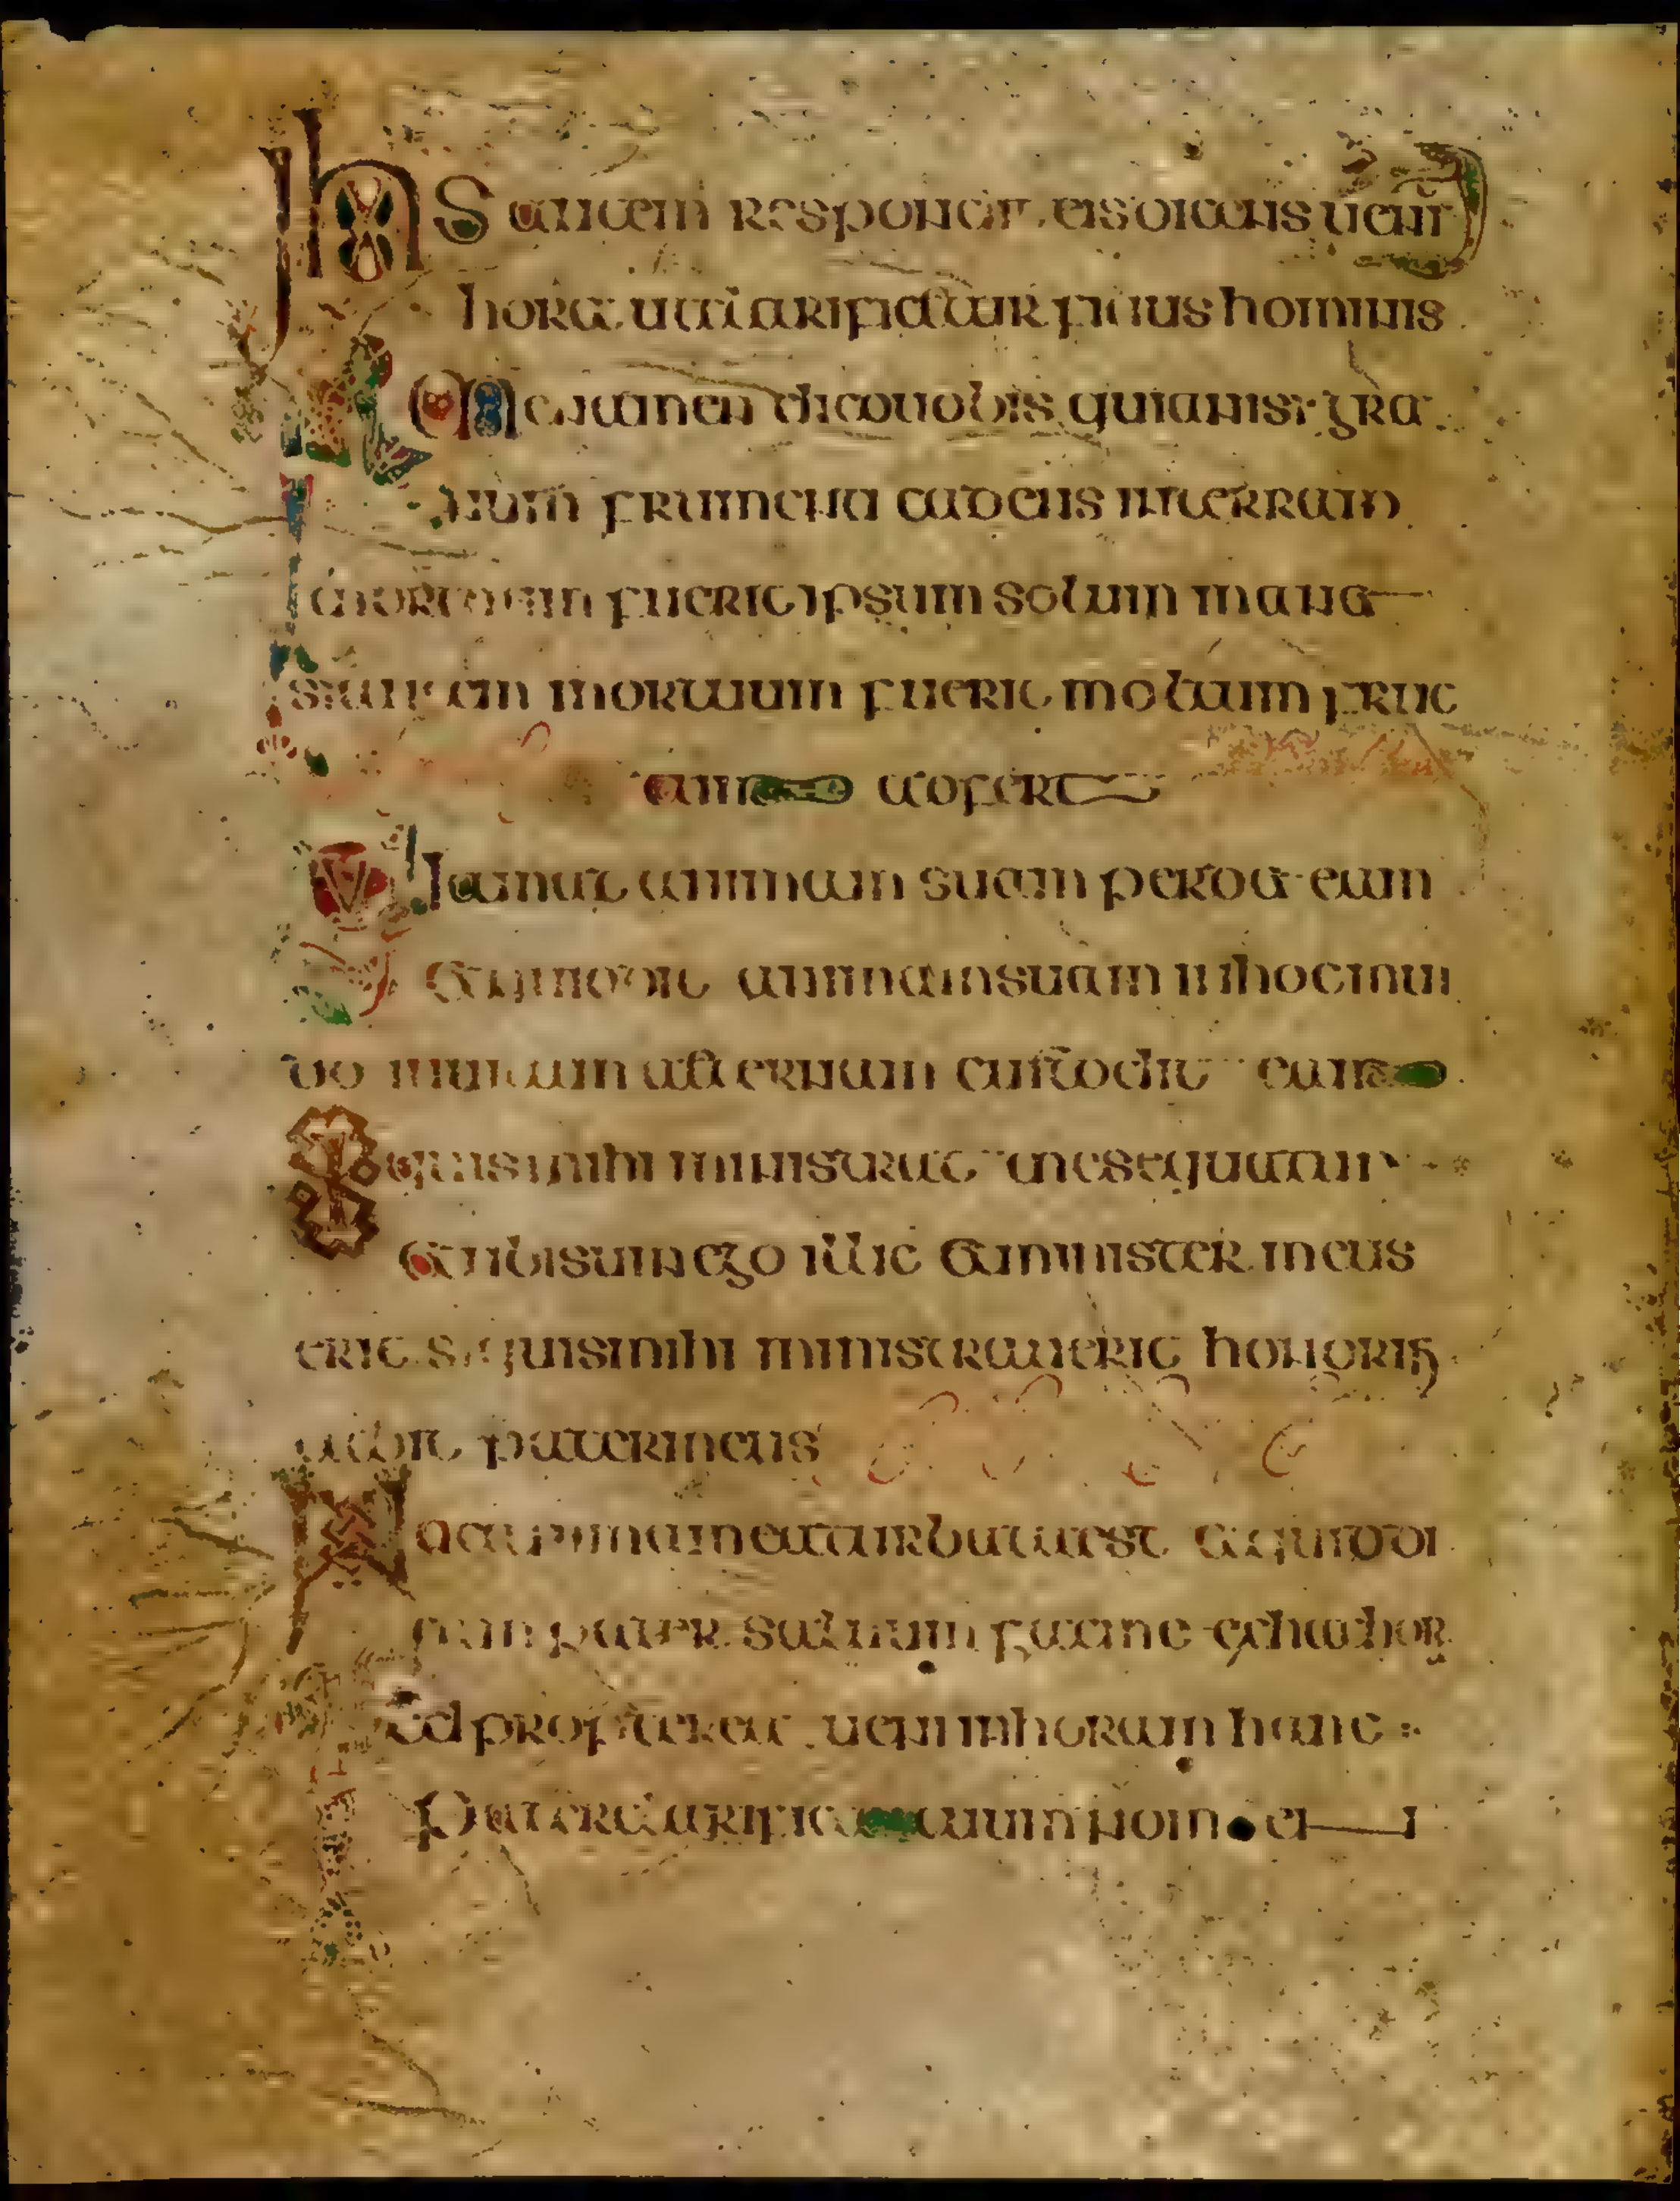 ihs autem respondit eis dicens uenit
hora ut clarificetur filius hominis
amen dico uobis quia nisi gra
num frumenti cadens in terram
mortuum fuerit ipsum solum mane
si autem mortuum fuerit multum fruc
tum adfert
Qui amat animam suam perdet eam
et qui odit animam suam in hoc mun
do in uitam aeternam custodit eam
Si quis mihi ministrat me sequatur
et ubi sum ego illic et minister meus
erit si quis mihi ministrauerit honorifi
cabit pater meus
Nunc anima mea turbata est et quid di
cam pater saluum fac me ex hac hor
sed propterea ueni in horam hanc
Pater clarifica tuum nomen